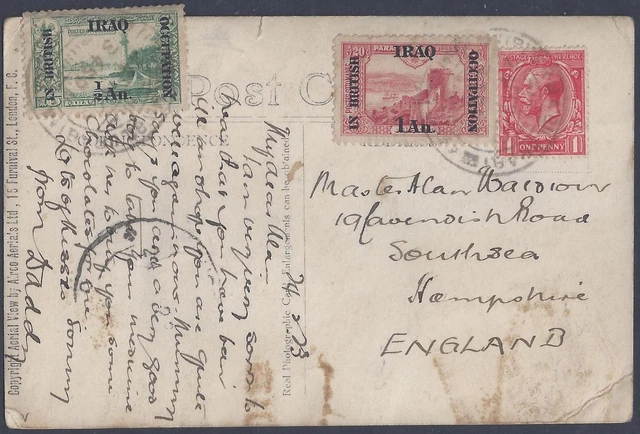 IRAQ
IN BRITISH
OCCUPATION
½ An.
IRAQ
IN BRITISH
OCCUPATION
1 An.
POSTAGE REVENUE
ONE PENNY
1
Post C
Copyright Aerial View by Airco Aerials Ltd., 15 Furnival St., London, E.C.
Real Photographic Enlargements can be obtained
24.5.23
My dear Alan
I am very sorry to
hear that you have been
ill and hope you are quite
well again now. Mummy
says you are a very good
boy to take your medicine
to buy you some
chocolates
Lots of kisses Sonny
from Daddy
Master Alan
19 Cavendish Road
Southsea
Hampshire
ENGLAND